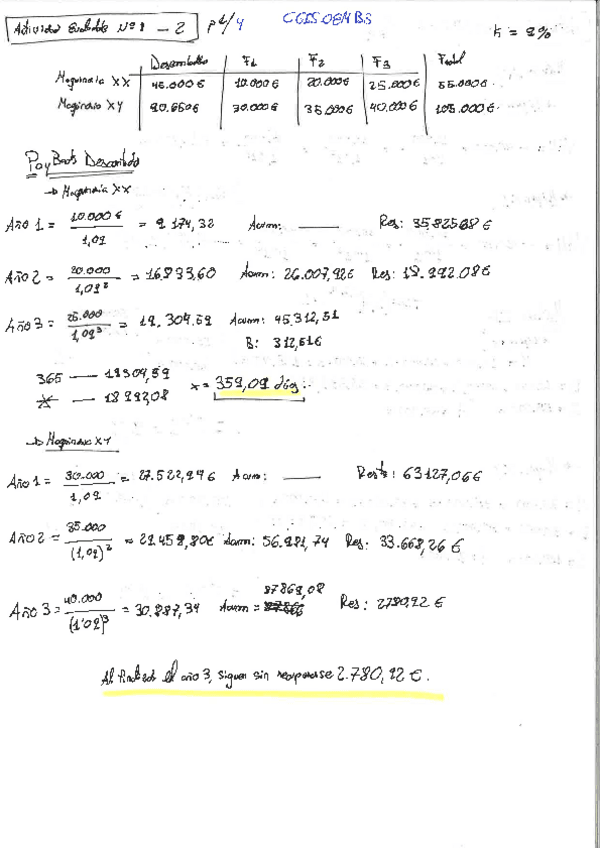 Actividad Evaluable Nº 1 - 2 P2/4 CGIS OEM B3 K = 9%
Desembolso F1 F2 F3 Total
Maquinaria XX 45.000€ 10.000€ 20.000€ 25.000€ 55.000€
Maquinaria XY 90.650€ 30.000€ 35.000€ 40.000€ 105.000€
PayBack Descontado
→ Maquinaria XX
Año 1 = 10.000€ / 1,09 = 9174,32 Acum: —— Res: 35825,68€
Año 2 = 20.000 / 1,09² = 16.833,60 Acum: 26.007,92€ Res: 18.992.08€
Año 3 = 25.000 / 1,09³ = 19.304,59 Acum: 45.312,51
B: 312,51€
365 —— 19304,59
X —— 18992,08 x = 359,09 días.
→ Maquinaria XY
Año 1 = 30.000 / 1,09 = 27.522,94€ Acum: —— Rest: 63127,06€
Año 2 = 35.000 / (1,09)² = 29.458,80€ Acum: 56.981,74 Res: 33.668,26€
Año 3 = 40.000 / (1'09)³ = 30.887,34 Acum = 87869,08 Res: 2780,92€
Al finalizado el año 3, siguen sin recuperarse 2.780,92€.